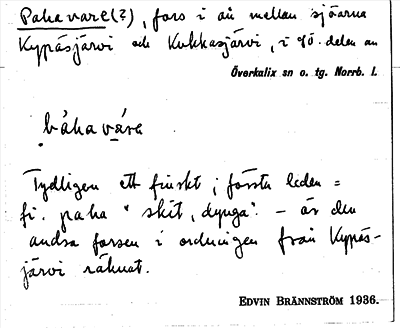 Pahavare(?), fors i ån mellan sjöarna
Kypäsjärvi och Kukkasjärvi, i sö. delen av
Överkalix sn o. tg. Norrb. l.
båhavára
Tydligen ett finskt; första leden =
fi. paha "skit, dynga". – är den
andra forsen i ordningen från Kypäs-
järvi räknat.
EDVIN BRÄNNSTRÖM 1936.